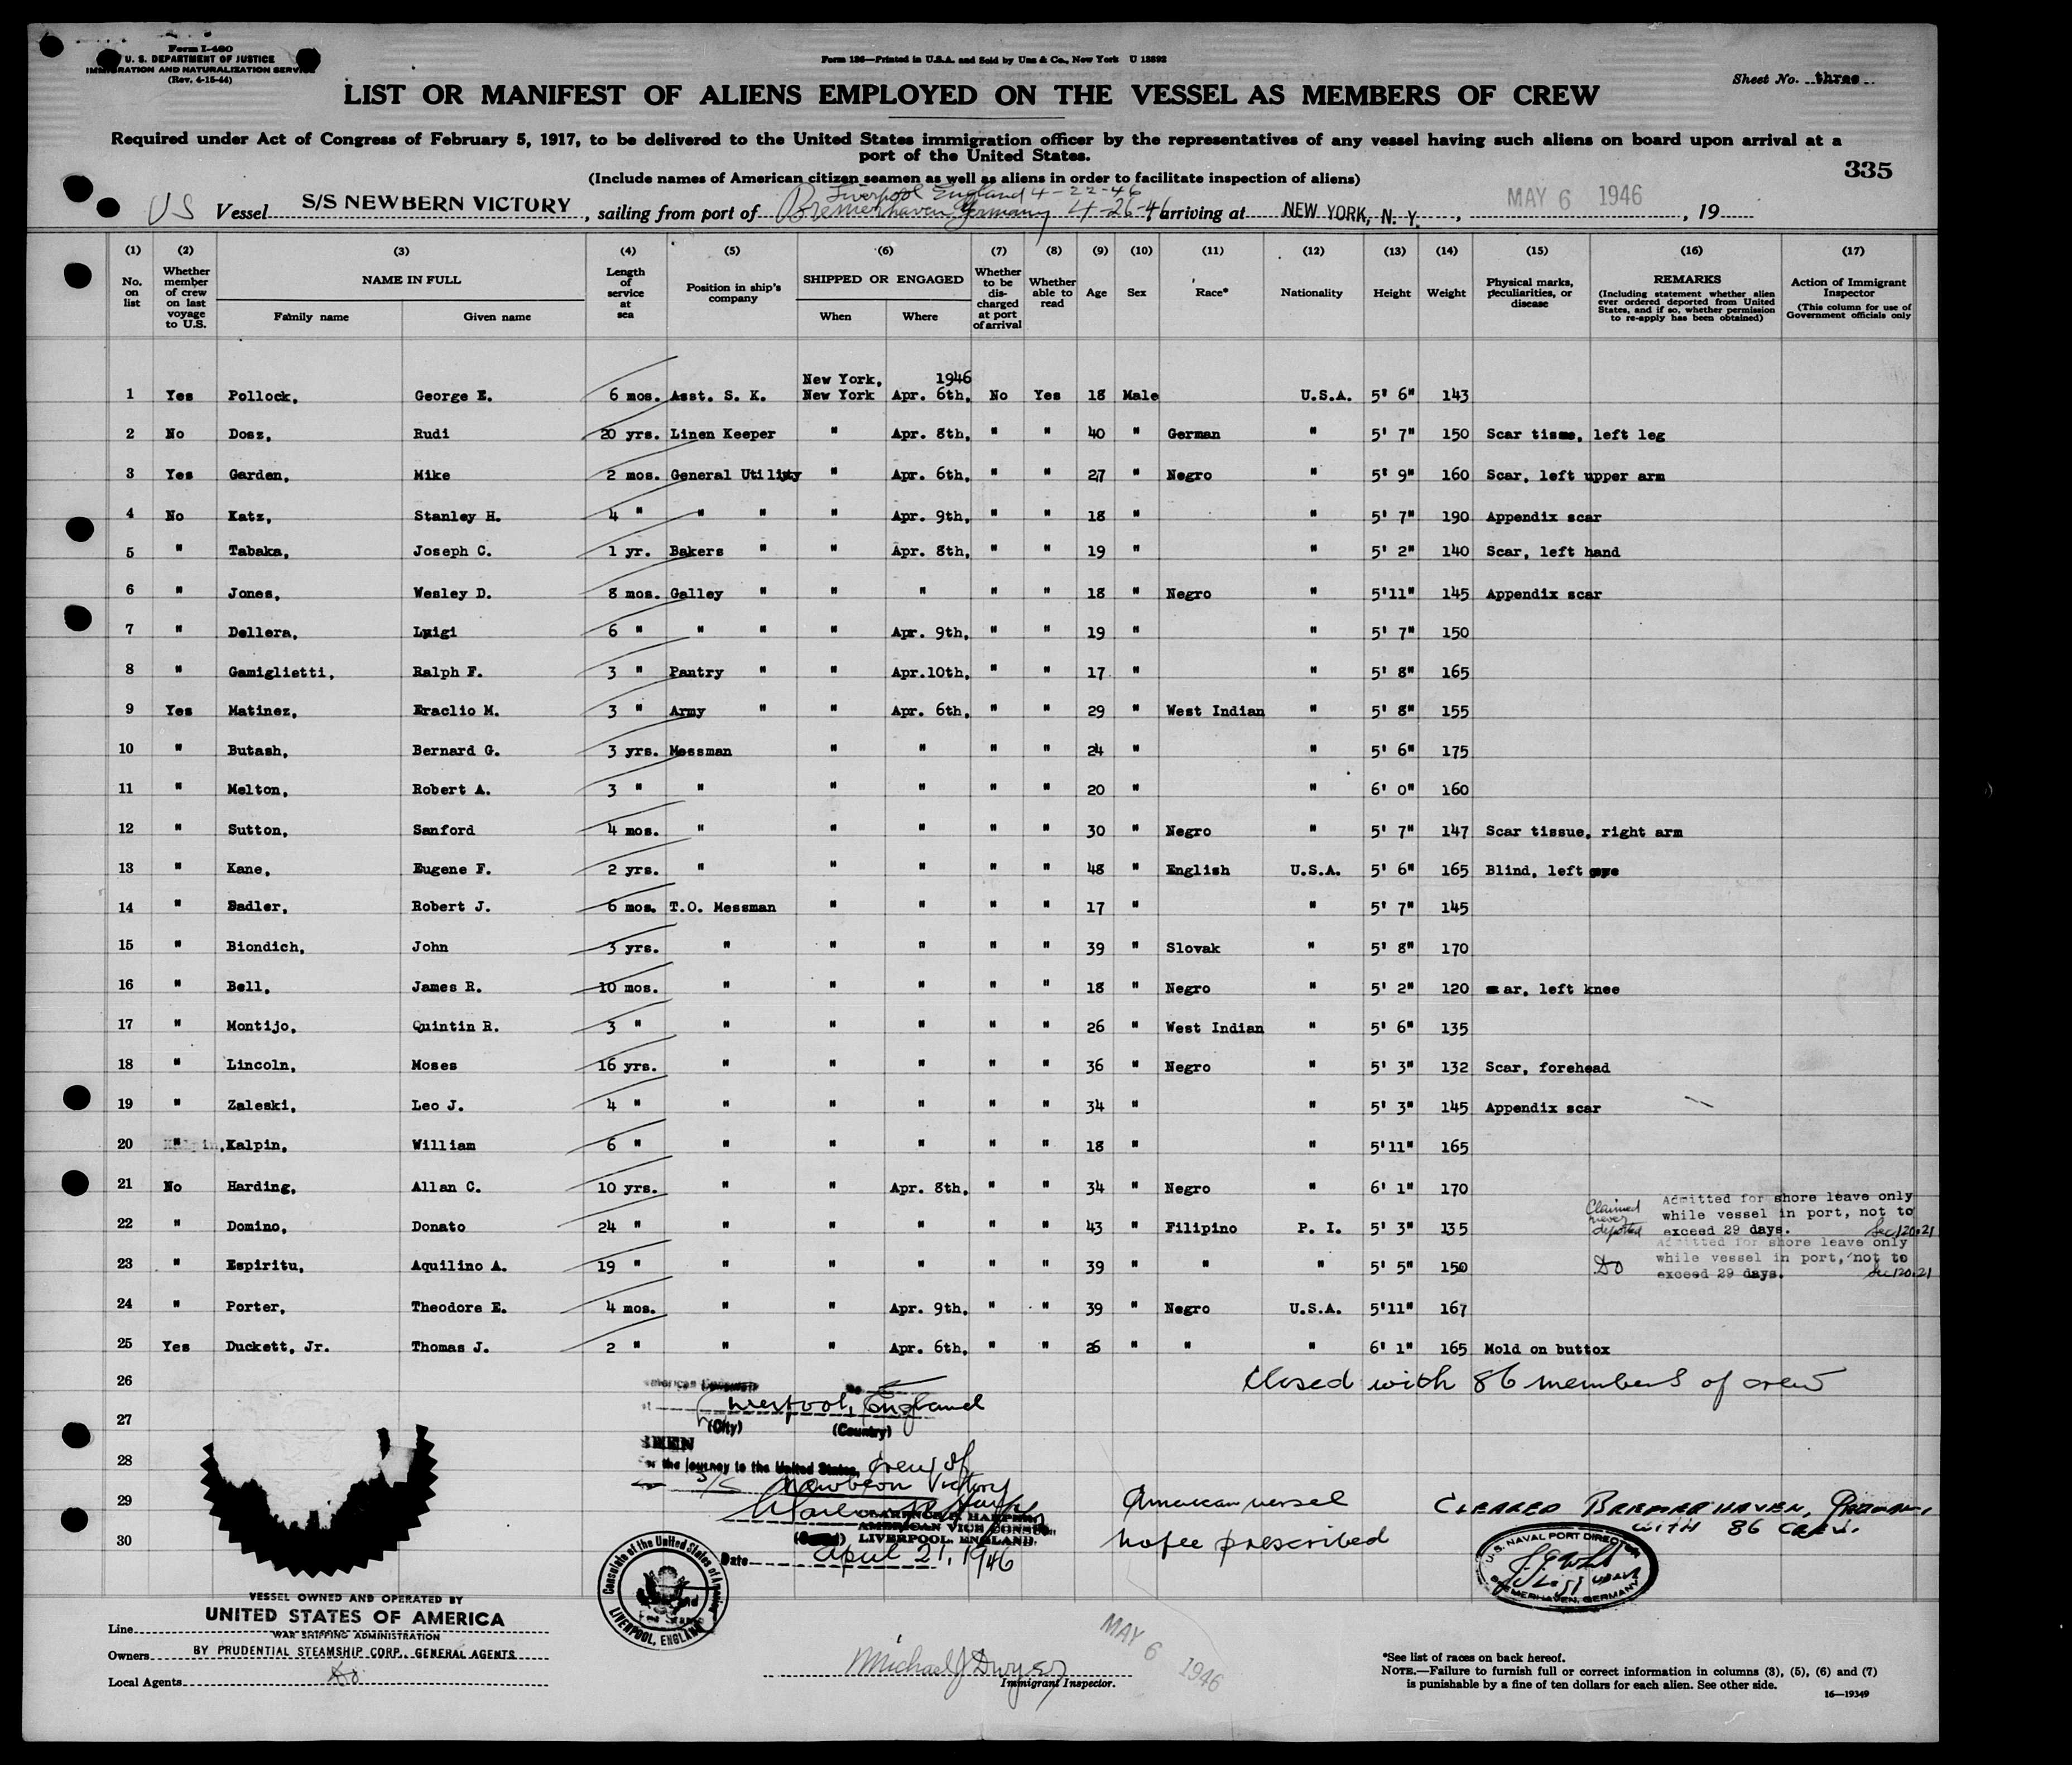 Form I-480
U. S. DEPARTMENT OF JUSTICE
IMMIGRATION AND NATURALIZATION SERVICE
(Rev. 4-15-44)
Form 136—Printed in U.S.A. and Sold by Unz & Co., New York U 13892
Sheet No. three
LIST OR MANIFEST OF ALIENS EMPLOYED ON THE VESSEL AS MEMBERS OF CREW
Required under Act of Congress of February 5, 1917, to be delivered to the United States immigration officer by the representatives of any vessel having such aliens on board upon arrival at a
port of the United States.
335
(Include names of American citizen seamen as well as aliens in order to facilitate inspection of aliens)
Liverpool England 4-22-46
US Vessel S/S NEWBERN VICTORY, sailing from port of Bremerhaven Germany 4-26-46, arriving at NEW YORK, N. Y., MAY 6 1946, 19
(1) (2) (3) (4) (5) (6) (7) (8) (9) (10) (11) (12) (13) (14) (15) (16) (17)
No. on list
Whether member of crew on last voyage to U.S.
NAME IN FULL
Family name Given name
Length of service at sea
Position in ship's company
SHIPPED OR ENGAGED
When Where
Whether to be discharged at port of arrival
Whether able to read
Age
Sex
Race*
Nationality
Height
Weight
Physical marks, peculiarities, or disease
REMARKS
(Including statement whether alien ever ordered deported from United States, and if so, whether permission to re-apply has been obtained)
Action of Immigrant Inspector
(This column for use of Government officials only
New York, 1946
1 Yes Pollock, George E. 6 mos. Asst. S. K. New York Apr. 6th, No Yes 18 Male U.S.A. 5' 6" 143
2 No Dosz, Rudi 20 yrs. Linen Keeper " Apr. 8th, " " 40 " German " 5' 7" 150 Scar tisse, left leg
3 Yes Garden, Mike 2 mos. General Utility " Apr. 6th, " " 27 " Negro " 5' 9" 160 Scar, left upper arm
4 No Katz, Stanley H. 4 " " " " Apr. 9th, " " 18 " " 5' 7" 190 Appendix scar
5 " Tabaka, Joseph C. 1 yr. Bakers " " Apr. 8th, " " 19 " " 5' 2" 140 Scar, left hand
6 " Jones, Wesley D. 8 mos. Galley " " " " " 18 " Negro " 5'11" 145 Appendix scar
7 " Dellera, Luigi 6 " " " " Apr. 9th, " " 19 " " 5' 7" 150
8 " Gamiglietti, Ralph F. 3 " Pantry " " Apr.10th, " " 17 " " 5' 8" 165
9 Yes Matinez, Eraclio M. 3 " Army " " Apr. 6th, " " 29 " West Indian " 5' 8" 155
10 " Butash, Bernard G. 3 yrs. Messman " " " " 24 " " 5' 6" 175
11 " Melton, Robert A. 3 " " " " " " 20 " " 6' 0" 160
12 " Sutton, Sanford 4 mos. " " " " " 30 " Negro " 5' 7" 147 Scar tissue, right arm
13 " Kane, Eugene F. 2 yrs. " " " " " 48 " English U.S.A. 5' 6" 165 Blind, left eye
14 " Sadler, Robert J. 6 mos. T.O. Messman " " " " 17 " " 5' 7" 145
15 " Biondich, John 3 yrs. " " " " " 39 " Slovak " 5' 8" 170
16 " Bell, James R. 10 mos. " " " " " 18 " Negro " 5' 2" 120 ar, left knee
17 " Montijo, Quintin R. 3 " " " " " " 26 " West Indian " 5' 6" 135
18 " Lincoln, Moses 16 yrs. " " " " " 36 " Negro " 5' 3" 132 Scar, forehead
19 " Zaleski, Leo J. 4 " " " " " " 34 " " 5' 3" 145 Appendix scar
20 " Kalpin, William 6 " " " " " " 18 " " 5'11" 165
21 No Harding, Allan C. 10 yrs. " " Apr. 8th, " " 34 " Negro " 6' 1" 170
22 " Domino, Donato 24 " " " " " " 43 " Filipino P. I. 5' 3" 135 Claimed never deported Admitted for shore leave only while vessel in port, not to exceed 29 days. Sec 120.21
23 " Espiritu, Aquilino A. 19 " " " " " " 39 " " " 5' 5" 150 Do Admitted for shore leave only while vessel in port, not to exceed 29 days. Sec 120.21
24 " Porter, Theodore E. 4 mos. " " Apr. 9th, " " 39 " Negro U.S.A. 5'11" 167
25 Yes Duckett, Jr. Thomas J. 2 " " " Apr. 6th, " " 26 " " " 6' 1" 165 Mold on buttox
26 Closed with 86 members of crew
27
28
29
30
American
at Liverpool, England
(City) (Country)
SEEN
For the journey to the United States, Crew of
S/S Newbern Victory
CLARENCE HARPER
AMERICAN VICE CONSUL
LIVERPOOL, ENGLAND.
Date April 21, 1946
American vessel
no fee prescribed
CLEARED BREMERHAVEN, GERMANY
WITH 86 CREW.
U.S. NAVAL PORT DIRECTOR
BREMERHAVEN, GERMANY
Consulate of the United States of America
LIVERPOOL, ENGLAND
VESSEL OWNED AND OPERATED BY
UNITED STATES OF AMERICA
Line WAR SHIPPING ADMINISTRATION
Owners BY PRUDENTIAL STEAMSHIP CORP., GENERAL AGENTS
Local Agents Do
Michael J Dwyer
Immigrant Inspector.
MAY 6 1946
*See list of races on back hereof.
NOTE.—Failure to furnish full or correct information in columns (3), (5), (6) and (7)
is punishable by a fine of ten dollars for each alien. See other side.
16—19349